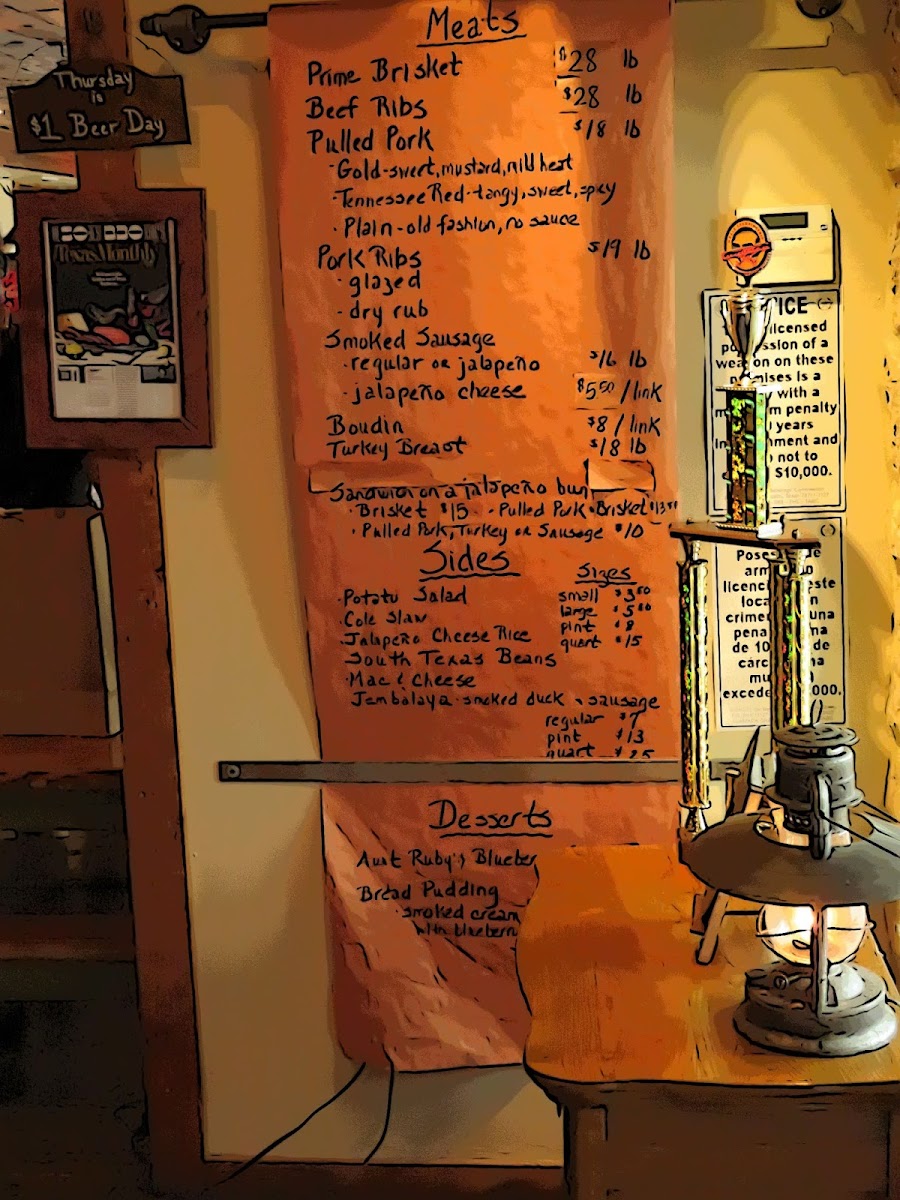 Thursday
is
$1 Beer Day
Texas Monthly
Meats
Prime Brisket $28 lb
Beef Ribs $28 lb
Pulled Pork $18 lb
- Gold-sweet, mustard, mild heat
- Tennessee Red-tangy, sweet, spicy
- Plain-old fashion, no sauce
Pork Ribs $19 lb
- glazed
- dry rub
Smoked Sausage
- regular or jalapeño $16 lb
- jalapeño cheese $5.50 /link
Boudin $8 / link
Turkey Breast $18 lb
Sandwich on a jalapeño bun
• Brisket $15 • Pulled Pork & Brisket $13.50
• Pulled Pork, Turkey or Sausage $10
Sides
Sizes
• Potato Salad small $3.50
• Cole Slaw large $5.50
Jalapeño Cheese Rice pint $8
South Texas Beans quart $15
• Mac & Cheese
Jambalaya - smoked duck & sausage
regular $7
pint $13
quart $25
Desserts
Aunt Ruby's Blueber
Bread Pudding
• smoked cream
with blueberr
ICE
licensed
of a
on these
is a
with a
penalty
years
and
not to
$10,000.
de
licenci este
loca
crime una
pena
de 10 de
mu
excede 000.